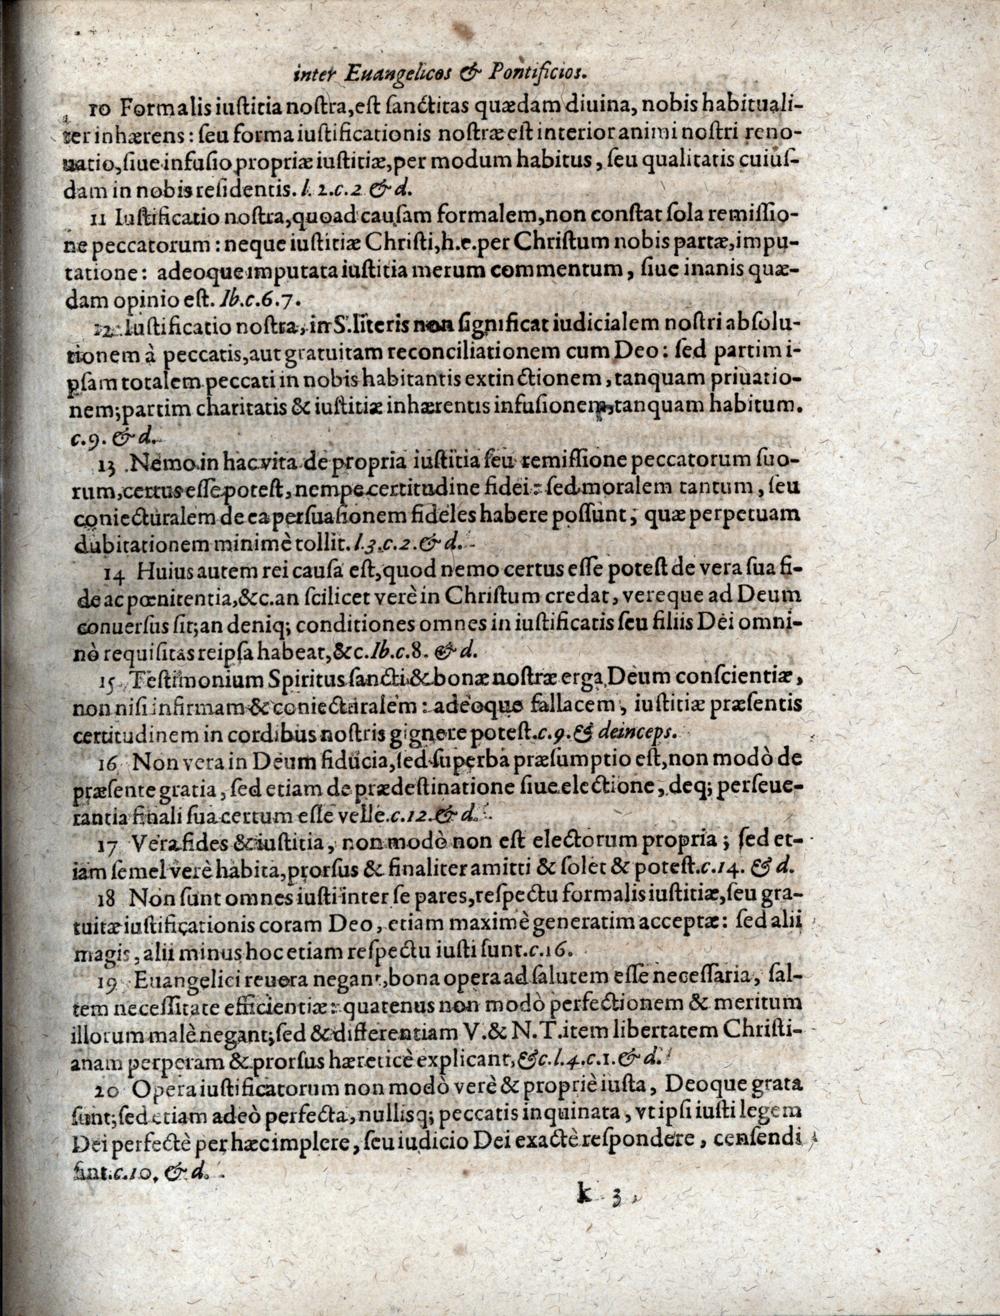 inter Euangelicos & Pontificios.
10 Formalis iuſtitia noſtra, eſt ſanctitas quædam diuina, nobis habituali-
ter inhærens: ſeu forma iuſtificationis noſtræ eſt interior animi noſtri reno-
uatio, ſiue infuſio propriæ iuſtitiæ, per modum habitus, ſeu qualitatis cuiuſ-
dam in nobis reſidentis. l. 2. c. 2 & d.
11 Iuſtificatio noſtra, quoad cauſam formalem, non conſtat ſola remiſſio-
ne peccatorum: neque iuſtitiæ Chriſti, h.e. per Chriſtum nobis partæ, impu-
tatione: adeoque imputata iuſtitia merum commentum, ſiue inanis quæ-
dam opinio eſt. Ib. c. 6. 7.
12. Iuſtificatio noſtra, in S. literis non ſignificat iudicialem noſtri abſolu-
tionem à peccatis, aut gratuitam reconciliationem cum Deo: ſed partim i-
pſam totalem peccati in nobis habitantis extinctionem, tanquam priuatio-
nem; partim charitatis & iuſtitiæ inhærentis infuſionem, tanquam habitum.
c. 9. & d.
13 Nemo in hac vita de propria iuſtitia ſeu remiſſione peccatorum ſuo-
rum, certus eſſe poteſt, nempe certitudine fidei: ſed moralem tantum, ſeu
coniecturalem de ea perſuaſionem fideles habere poſſunt; quæ perpetuam
dubitationem minimè tollit. l. 3. c. 2. & d.
14 Huius autem rei cauſa eſt, quod nemo certus eſſe poteſt de vera ſua fi-
de ac pœnitentia, &c. an ſcilicet verè in Chriſtum credat, vereque ad Deum
conuerſus ſit; an deniq; conditiones omnes in iuſtificatis ſeu filiis Dei omni-
nò requiſitas reipſa habeat, &c. Ib. c. 8. & d.
15 Teſtimonium Spiritus ſancti & bonæ noſtræ erga Deum conſcientiæ,
non niſi infirmam & coniecturalem: adeoque fallacem, iuſtitiæ præſentis
certitudinem in cordibus noſtris gignere poteſt. c. 9. & deinceps.
16 Non vera in Deum fiducia, ſed ſuperba præſumptio eſt, non modò de
præſente gratia, ſed etiam de prædeſtinatione ſiue electione, deq; perſeue-
rantia finali ſua certum eſſe velle. c. 12. & d.
17 Vera fides & iuſtitia, non modò non eſt electorum propria; ſed et-
iam ſemel verè habita, prorſus & finaliter amitti & ſolet & poteſt. c. 14. & d.
18 Non ſunt omnes iuſti inter ſe pares, reſpectu formalis iuſtitiæ, ſeu gra-
tuitæ iuſtificationis coram Deo, etiam maximè generatim acceptæ: ſed alii
magis, alii minus hoc etiam reſpectu iuſti ſunt. c. 16.
19 Euangelici reuera negant, bona opera ad ſalutem eſſe neceſſaria, ſal-
tem neceſſitate efficientiæ: quatenus non modò perfectionem & meritum
illorum malè negant; ſed & differentiam V. & N. T. item libertatem Chriſti-
anam perperam & prorſus hæreticè explicant, &c. l. 4. c. 1. & d.
20 Opera iuſtificatorum non modò verè & propriè iuſta, Deoque grata
ſunt; ſed etiam adeò perfecta, nullisq; peccatis inquinata, vt ipſi iuſti legem
Dei perfectè per hæc implere, ſeu iudicio Dei exactè reſpondere, cenſendi
ſint. c. 10. & d.
k 3